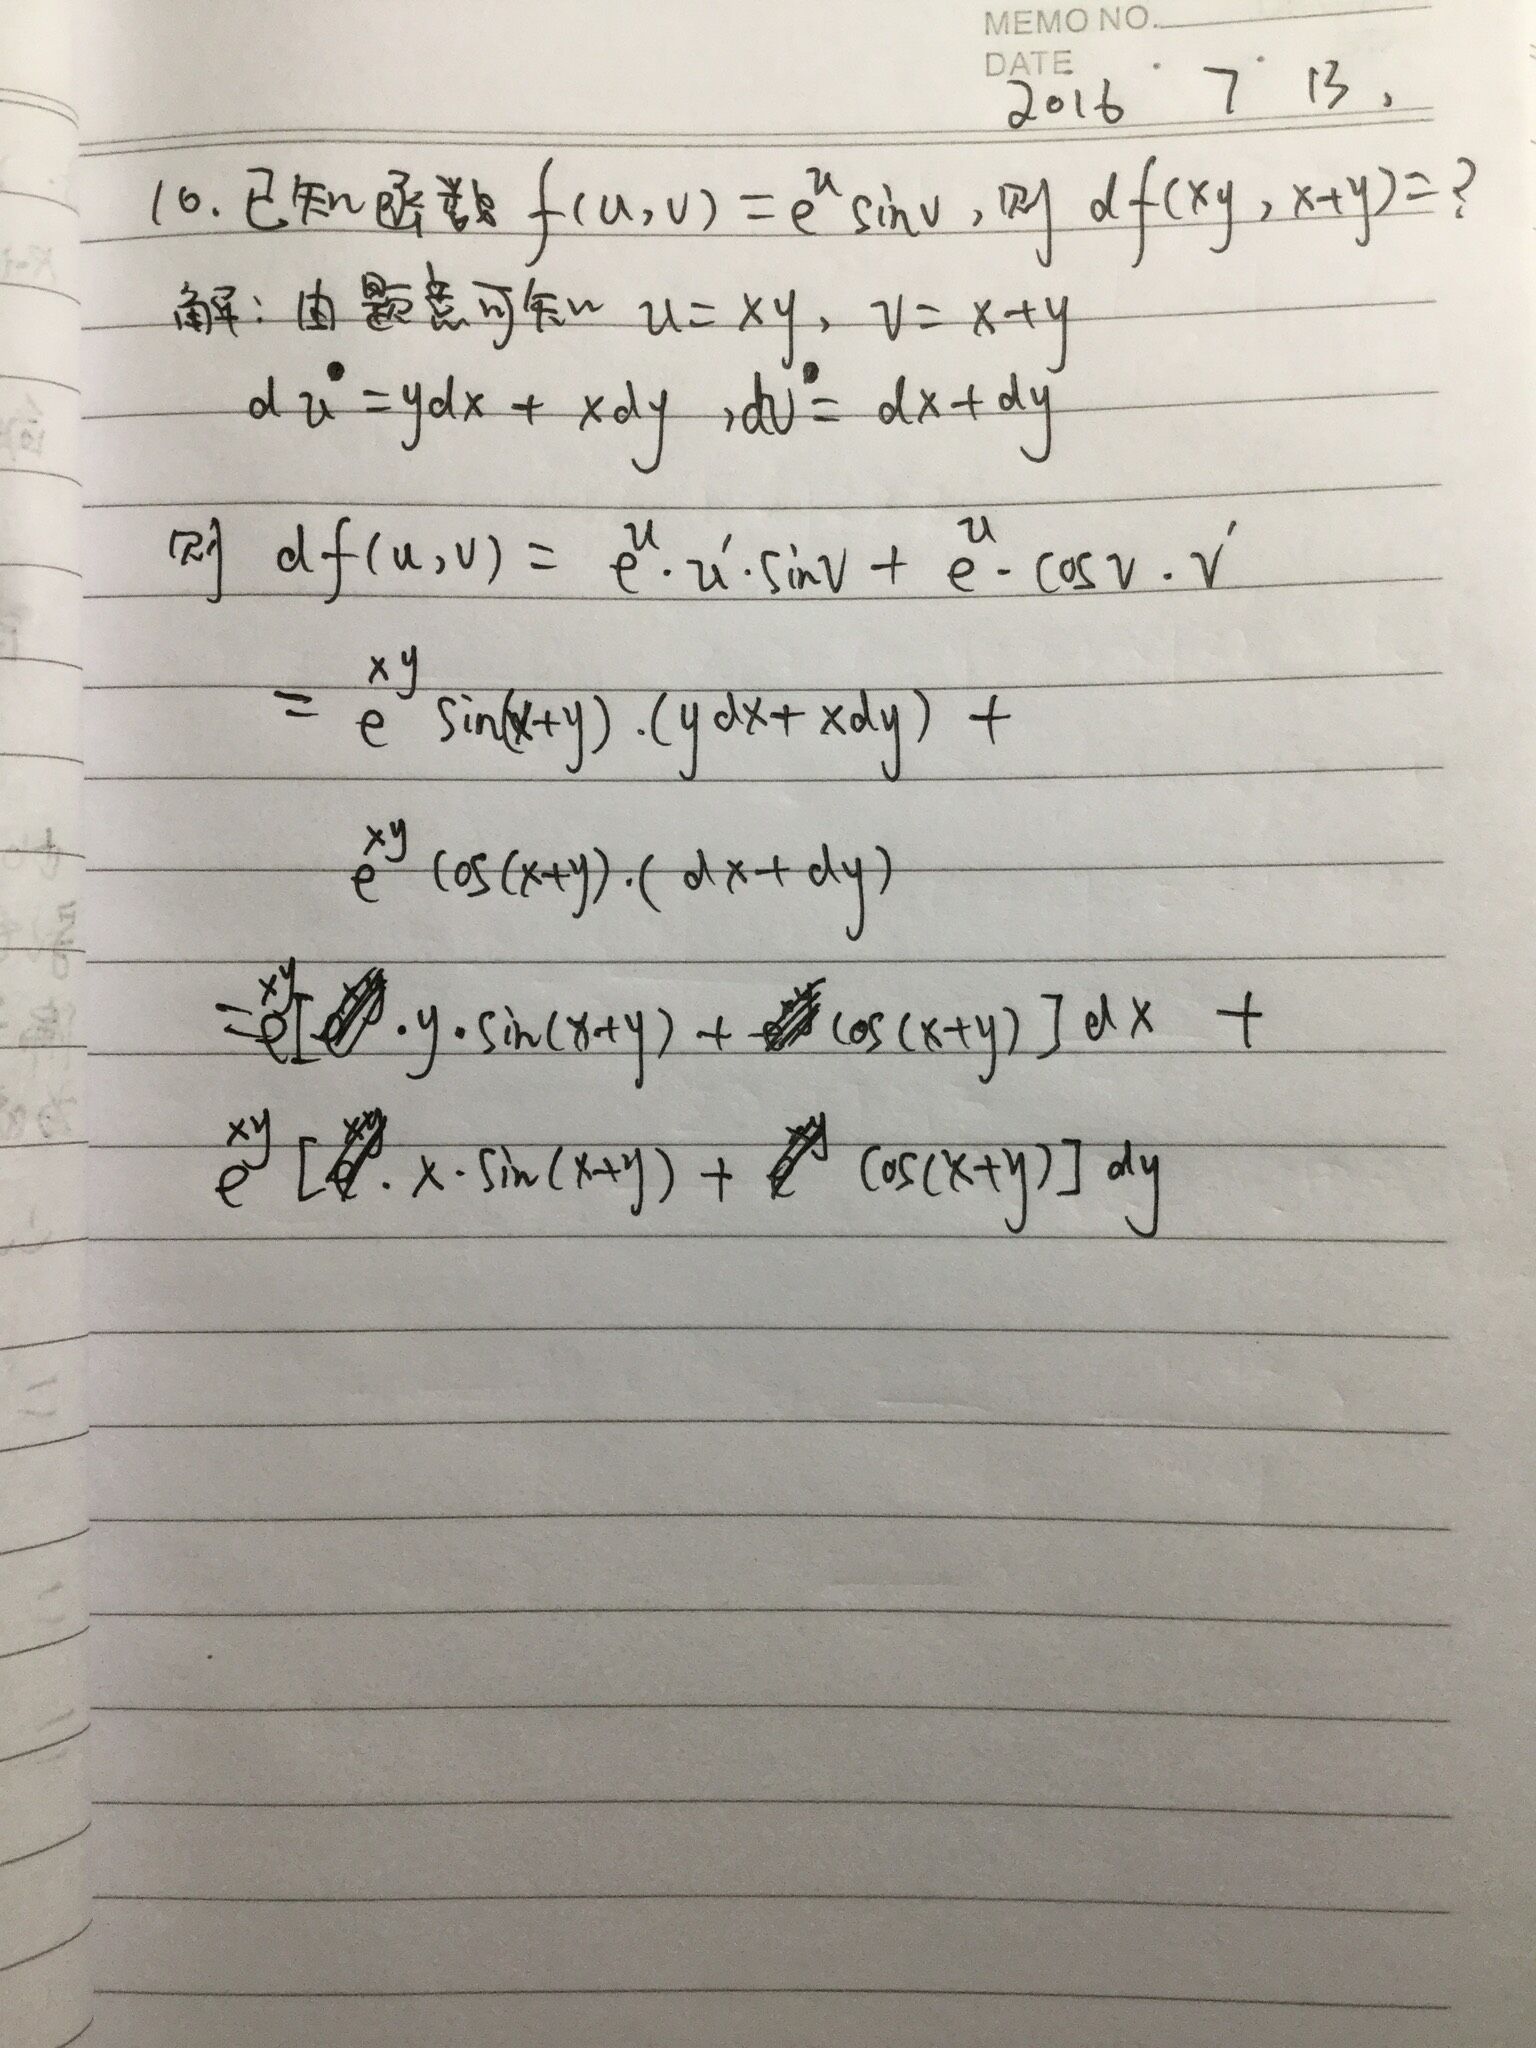 MEMO NO.
DATE
2016 7 13.
10. 已知函数 f(u,v) = e^u sinv, 则 df(xy, x+y)=?
解: 由题意可知 u=xy, v=x+y
du=ydx + xdy, dv= dx+dy
则 df(u,v) = e^u·u'·sinv + e^u·cosv·v'
= e^xy sin(x+y)·(ydx+xdy) +
e^xy cos(x+y)·(dx+dy)
=e^xy[·y·sin(x+y) + cos(x+y)]dx +
e^xy[·x·sin(x+y) + cos(x+y)]dy